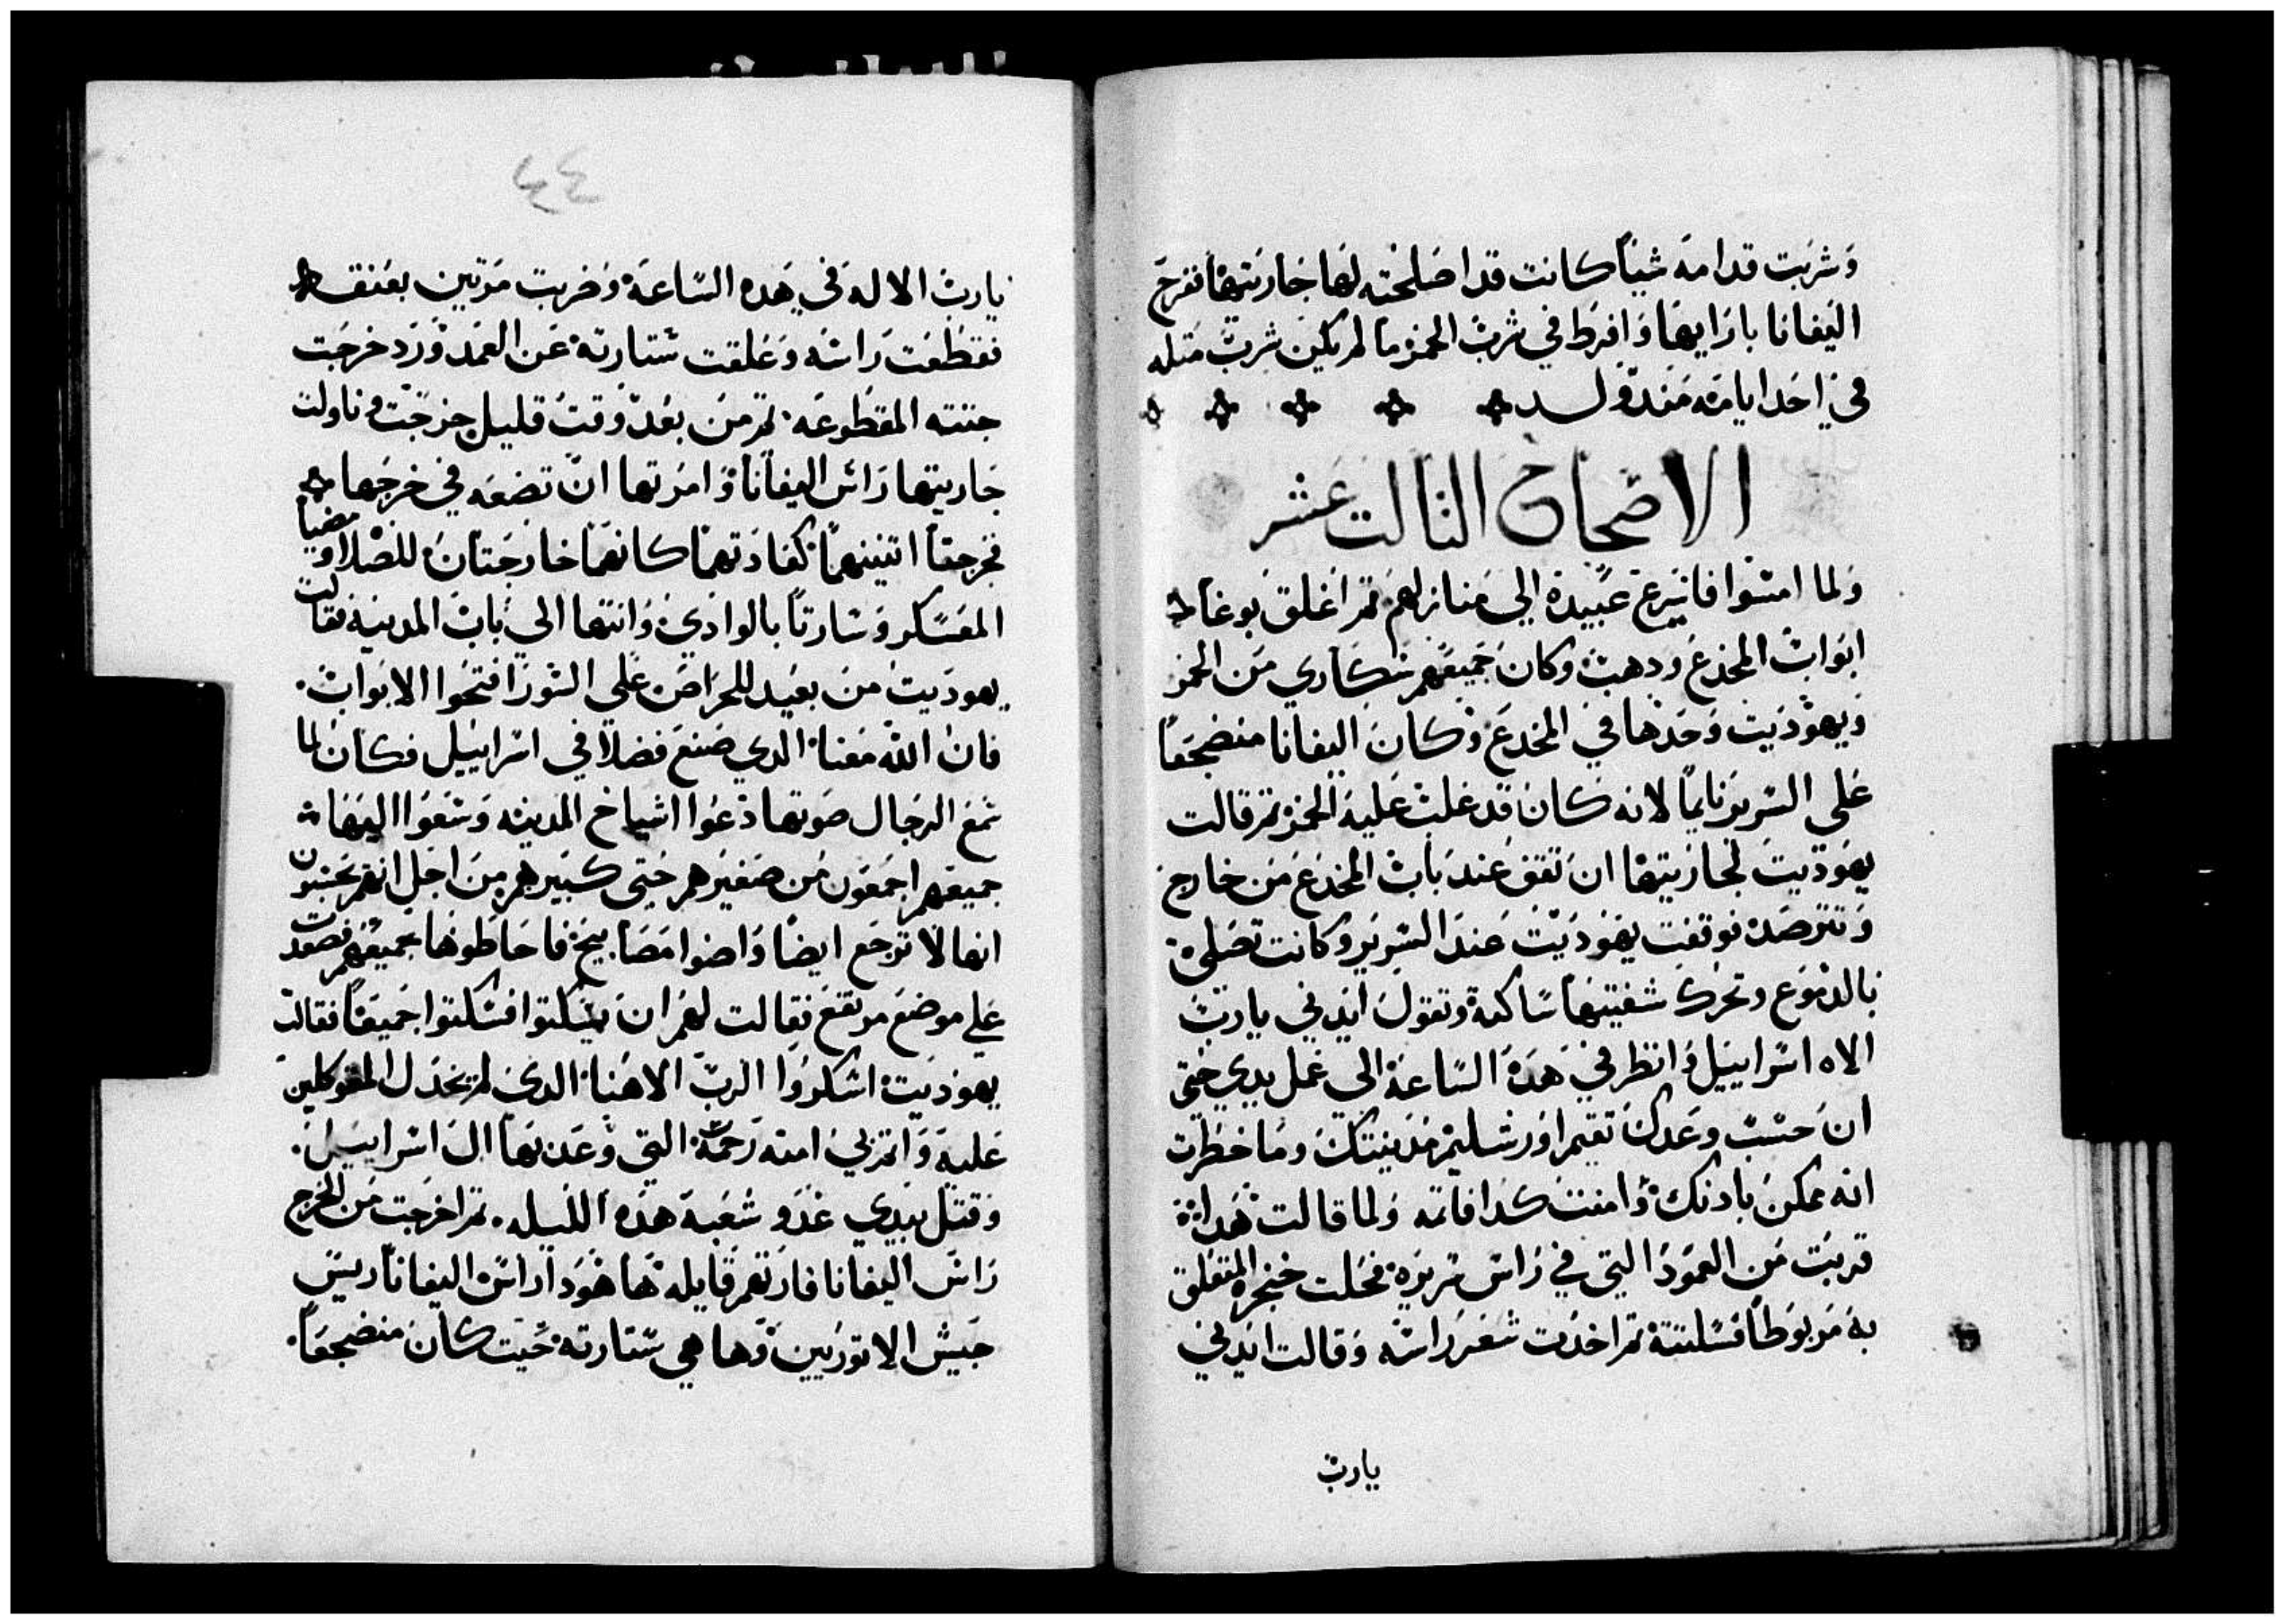 وشربت قدامه شياً كانت قد اصلحته لها جاريتها ففرح
اليفانا بازايها وافرط في شرب الخمر ما لم يكن شرب متله
في احد ايامه مند ولد
الاصحاح التالت عشر
ولما امسوا فاسرع عبيده الي منازلهم تم اغلق بوغا
ابواب المخدع ودهب وكان جميعهم سكاري من الخمر
ويهوديت وحدها في المخدع وكان اليفانا منضجعاً
علي السرير نايماً لانه كان قد غلب عليه الخمر تم قالت
يهوديت لجاريتها ان تقف عند باب المخدع من خارج
وتترصد فوقفت يهوديت عند السرير وكانت تصلي
بالدموع وتحرك شفتيها ساكتة وتقول ايدني يا رب
الاه اسراييل وانظر في هده الساعة الي عمل يدي حتي
ان حسب وعدك تقيم اورشليم مدينتك وما خطرت
انه ممكن بادنك وامنت كدا فاتمه ولما قالت هدا
قربت من العمود التي في راس سريره فحلت خنجره المتعلق
به مربوطاً فسلتته تم اخدت شعر راسه وقالت ايدني
يا رب
٤٤
يا رب الاله في هده الساعة وضربت مرتين بعنقه
فقطعت راسه وعلقت ستارته عن العمد وزد خرجت
جتته المقطوعه تم من بعد وقت قليل خرجت وناولت
جاريتها راس اليفانا وامرتها ان تضعه في خرجها
فخرجتا اتنينهما كعادتهما كانهما خارجتان للصلاه ومضيا
المعسكر وسارتا بالوادي وانتها الي باب المدينة فقالت
يهوديت من بعيد للحراص علي السور افتحوا الابواب
فان الله معنا الدي صنع فضلاً في اسراييل فكان لما
سمع الرجال صوتها دعوا اشياخ المدينه وسعوا اليها
جميعهم اجمعون من صغيرهم حتي كبيرهم من اجل انهم يحسبون
انها لا ترجع ايضا واضوا مصابيح فاحاطوها جميعهم فصعدت
علي موضع مرتفع فقالت لهم ان يسكتوا فسكتوا جميعاً فقالت
يهوديت اشكروا الرب الاهنا الدي لم يخدل المتوكلين
عليه واتم بي امته رحمته التي وعد بها ال اسراييل
وقتل بيدي عدو شعبه هده الليله تم اخرجت من الخرج
راس اليفانا فارتهم قايله ها هودا راس اليفانا ريس
جيش الاتوريين وها هي ستارته حيت كان منضجعاً